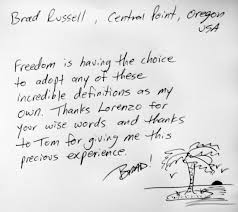 Brad Russell, Central Point, Oregon
USA
Freedom is having the choice
to adopt any of these
incredible definitions as my
own. Thanks Lorenzo for
your wise words and thanks
to Tom for giving me this
precious experience.
BRAD!